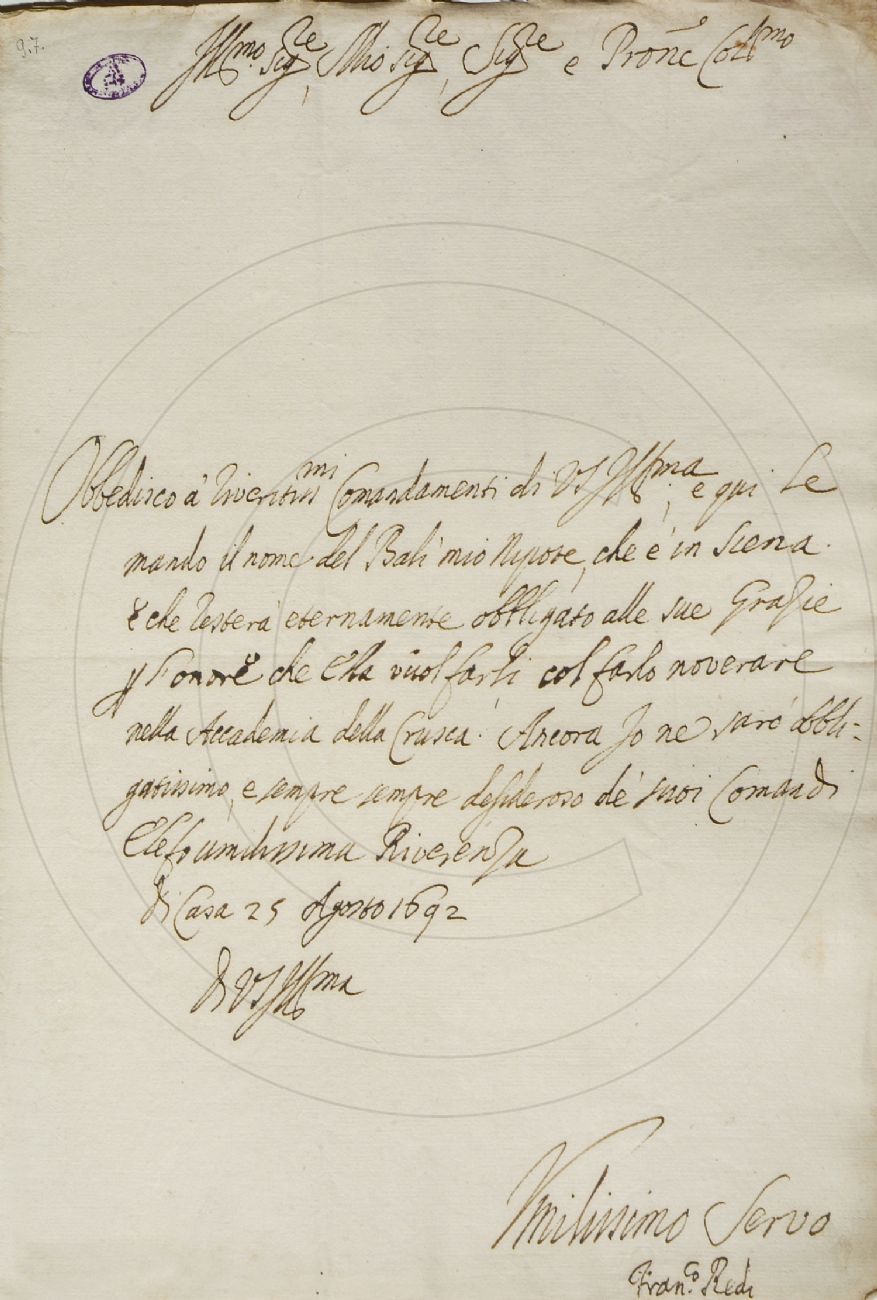 97.
Ill.mo Sig.re, Mio Sig.re, Sig.re e Pron.e Col.mo
Obbedisco a' riveritiss.mi Comandamenti di VS Ill.ma, e qui Le
mando il nome del Balì mio Nipote, che è in Siena.
e che resterà eternamente obbligato alle sue Grazie
p l'onore che Ella vuol farli col farlo noverare
nella Accademia della Crusca. Ancora Io ne sarò obbli-
gatissimo, e sempre sempre desideroso de' suoi Comandi
Le fo umilissima Riverenza
di Casa 25 Agosto 1692
di VS Ill.ma
Umilissimo Servo
Fran.co Redi